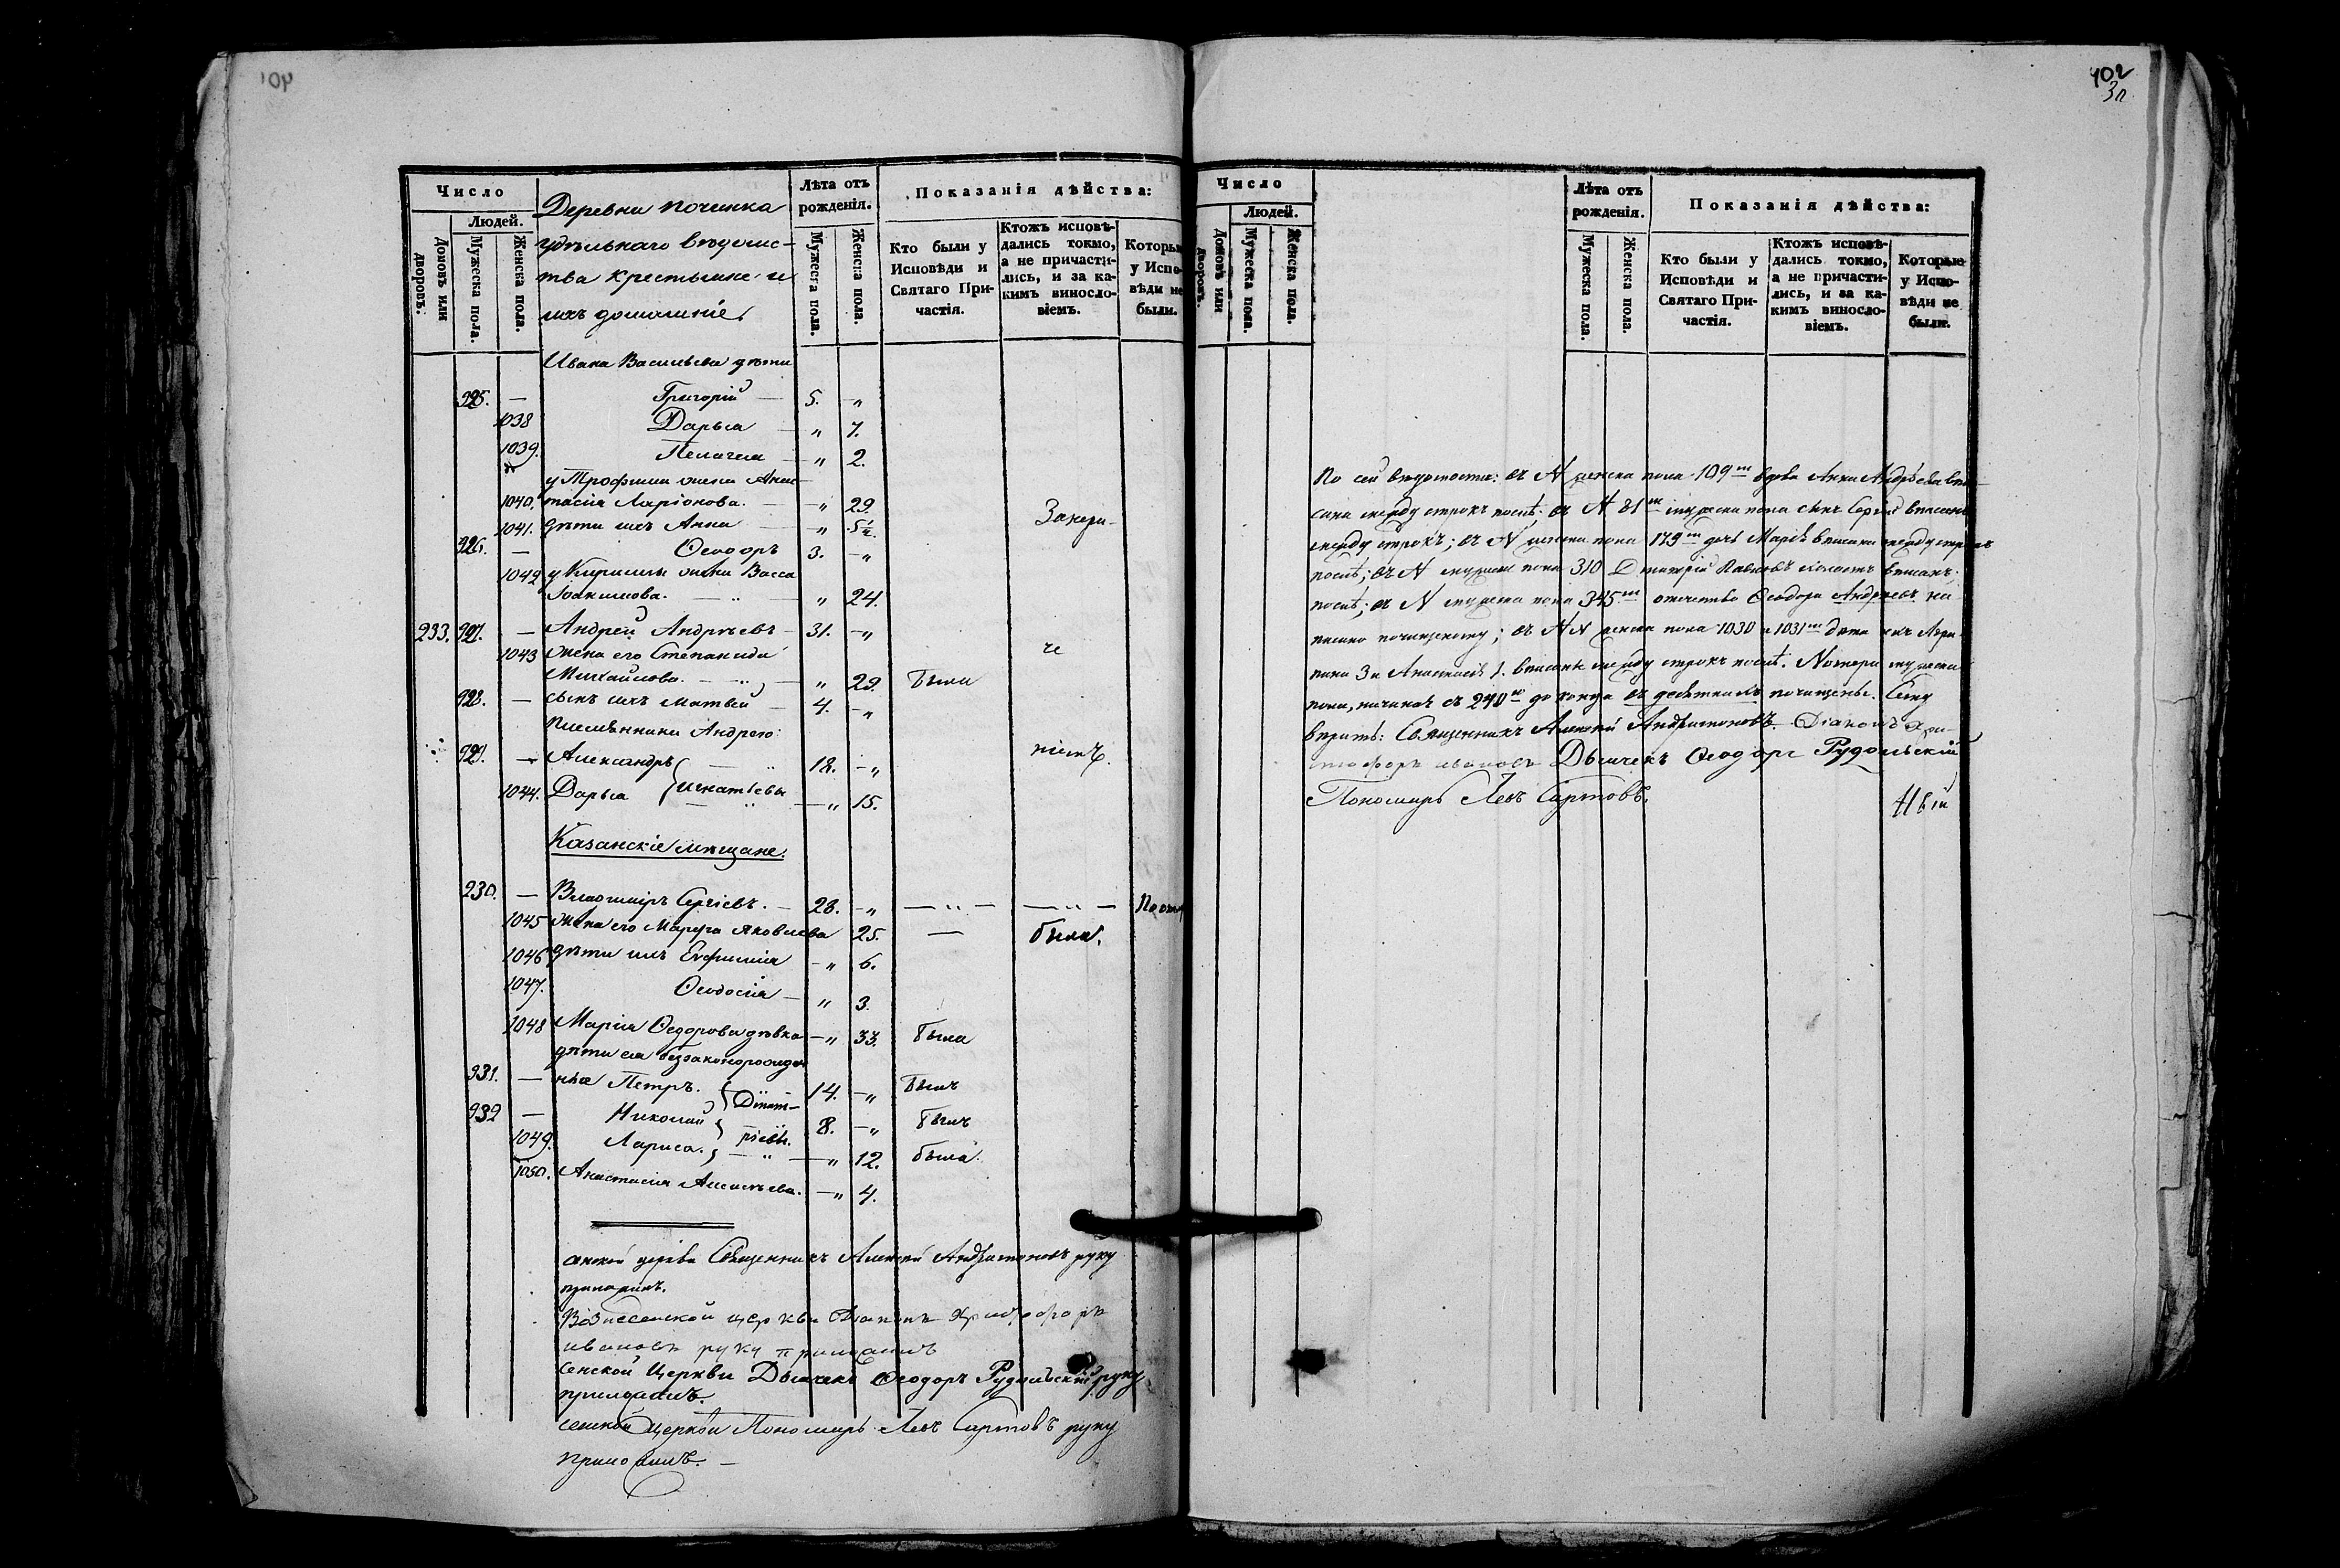 402
Число
Людей.
Домовъ или дворовъ.
Мужеска пола.
Женска пола.
Деревни починка
удѣльнаго вѣдомс-
тва крестьяне и
ихъ домашніе.
Лѣта отъ рожденія.
Мужеска пола.
Женска пола.
Показанія дѣйства:
Кто были у Исповѣди и Святаго При-частія.
Ктожъ исповѣ-дались токмо, а не причасти-лись, и за ка-кимъ винослo-віемъ.
Которые у Испо-вѣди не были.
Ивана Васильева дѣти
925. — Григорій — 5. — „
1038 Дарья — „ 7.
1039. Пелагея — „ 2.
у Трофима жена Анас-
1040. тасія Ларіонова. — „ 29.
1041. дѣти ихъ Анна — „ 5½.
926. — Ѳеодоръ 3. — „
1042 у Кирилы жена Васса
Іоакимова. — „ 24.
233. 927. — Андрей Андреевъ — 31. — „
1043 жена его Степанида
Михайлова. — „ 29. была
928. — сынъ ихъ Матвей — 4. — „
племянники Андрею:
929. — Александръ — 18. — „
1044. Дарья Игнатьевы — „ 15.
Казанскіе мѣщане.
930. — Владиміръ Сергіевъ. — 28. — „
1045 жена его Марѳа Яковлева 25. — была.
1046 дѣти ихъ Евфимія — „ 6.
1047. Ѳеодосія — „ 3.
1048 Марія Ѳедорова дѣвка — „ 33. была
дѣти ея беззаконорожден
931. — ные Петръ. 14. — „ былъ
932 — Николай Димит-
ріевы. 8. — „ былъ
1049. Лариса. — „ 12. была.
1050. Анастасія Алексѣева. — „ 4.
анской церкви Священникъ Алексей Андриановъ руку
приложилъ.
Вознесенской церкви Діаконъ Христофоръ
Ивановъ руку приложилъ
сенской Церкви Дьячекъ Ѳеодоръ Рудольскій руку
приложилъ.
сенской церкви Пономарь Левъ Сартовъ руку
приложилъ. —
Число
Людей.
Домовъ или дворовъ.
Мужеска пола.
Женска пола.
Лѣта отъ рожденія.
Мужеска пола.
Женска пола.
Показанія дѣйства:
Кто были у Исповѣди и Святаго При-частія.
Ктожъ исповѣ-дались токмо, а не причасти-лись, и за ка-кимъ винослo-віемъ.
Которые у Испо-вѣди не были.
По сей вѣдомости: въ N женска пола 109 м вдова Анна Андреева впи-
сана между строкъ послѣ; въ N 81 м мужеска пола сынъ Сергій вписанъ
между строкъ; въ N женска пола 179 м дочь Марія вписана между строкъ
послѣ; въ N мужеска пола 310 Димитрій Павловъ вписанъ
послѣ; въ N мужеска пола 345 м отчество Ѳеодора Андреевъ на-
писано почищеному; въ NN женска пола 1030 и 1031 м дѣти
3 и Анастасія 1. вписаны между строкъ послѣ. Номера мужеска
пола, начиная съ 240 го до конца въ десяткахъ почищены. Сему
вѣрить: Священникъ Алексей Андриановъ. Діаконъ Хри-
стофоръ Ивановъ Дьячекъ Ѳеодоръ Рудольскій
Пономарь Левъ Сартовъ.